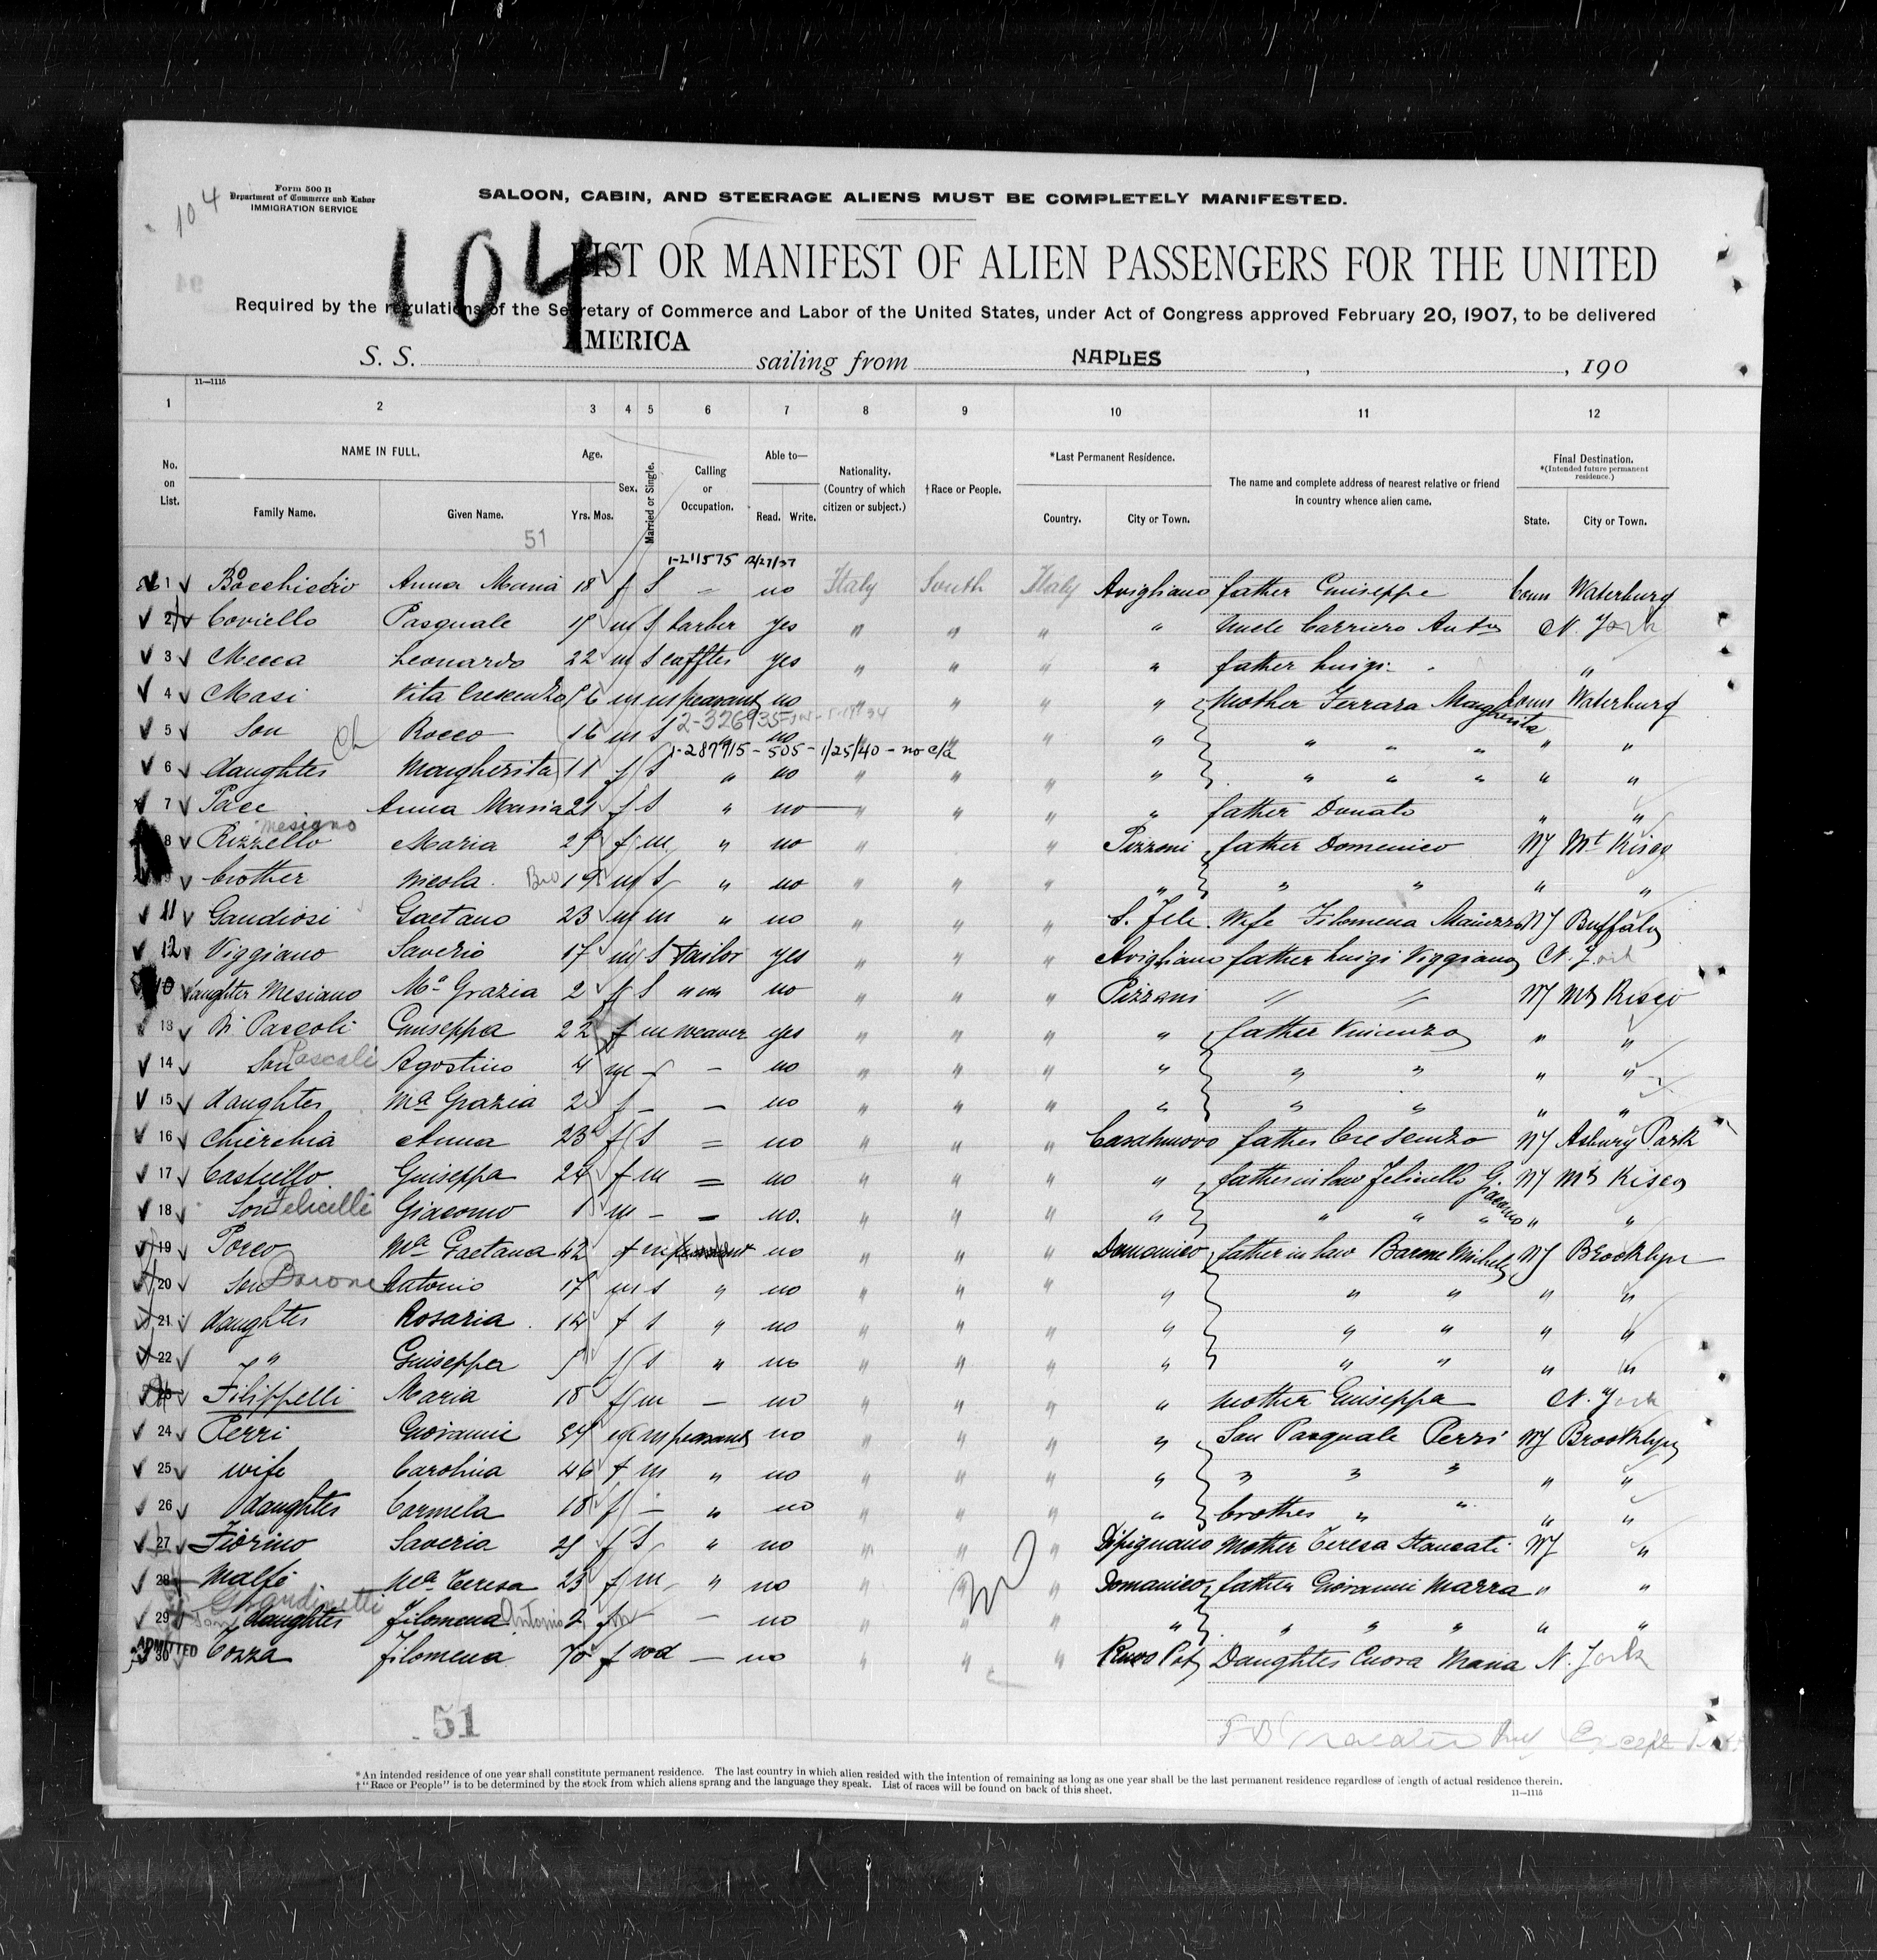 104
Form 500 B
Department of Commerce and Labor
IMMIGRATION SERVICE
SALOON, CABIN, AND STEERAGE ALIENS MUST BE COMPLETELY MANIFESTED.
104
LIST OR MANIFEST OF ALIEN PASSENGERS FOR THE UNITED
Required by the regulations of the Secretary of Commerce and Labor of the United States, under Act of Congress approved February 20, 1907, to be delivered
S. S. AMERICA sailing from NAPLES , , 190
11—1115
1 2 3 4 5 6 7 8 9 10 11 12
No. on List. NAME IN FULL. Age. Sex. Married or Single. Calling or Occupation. Able to— Nationality. (Country of which citizen or subject.) †Race or People. *Last Permanent Residence. The name and complete address of nearest relative or friend in country whence alien came. Final Destination. *(Intended future permanent residence.)
Family Name. Given Name. Yrs. Mos. Read. Write. Country. City or Town. State. City or Town.
51
1-211575 12/27/37
1 Bocchiccio Anna Maria 18 f S - no Italy South Italy Avigliano father Guiseppe Conn Waterbury
2 Coviello Pasquale m S barber yes " " " " Uncle Carriero Anto N. York
3 Mecca Leonardo 22 m S yes " " " " father Luigi "
4 Masi Vita Crescenzo m m peasant no " " " " Mother Ferrara Margherita Conn Waterbury
2-326935
5 Son Rocco 16 m S " no " " " " " " " "
1-287715 - 505 - 1/25/40 - no c/a
6 daughter Margherita 11 f S " no " " " " " " " " "
7 Pace Anna Maria 21 f S " no " " " " father Donato " "
Mesiano
8 Rizzello Maria f m " no " " " Pizzoni father Domenico NY Mt Kisco
brother Nicola Bro 19 m S " no " " " " " " " "
11 Gaudiosi Gaetano 23 m m " no " " " S. Fele Wife Filomena NY Buffalo
12 Viggiano Saverio 17 m S tailor yes " " " Avigliano father Luigi Viggiano N. York
10 daughter Mesiano Ma Grazia 2 f S " " no " " " Pizzoni " " NY Mt Kisco
13 Di Pascoli Guiseppa 22 f m weaver yes " " " " father Vincenzo " "
14 Son Pascali Agostino 4 m - - no " " " " " " " "
15 daughter Ma Grazia 2 f - - no " " " " " " " "
16 Chierchia Anna 23 f S = no " " " Casalnuovo father Cresenzo NY Asbury Park
17 Castiello Guiseppa 24 f m = no " " " " father in law Felicello Giacomo NY Mt Kisco
18 Son Felicelli Giacomo 1 m - = no. " " " " " " " " "
19 Porco Ma Gaetana 42 f m peasant no " " " Domanico father in law Barone Michele NY Brooklyn
20 Son Barone Antonio 17 m s " no " " " " " " " "
21 daughter Rosaria 14 f s " no " " " " " " " "
22 " Guiseppa 5 f s " no " " " " " " " "
Filippelli Maria 18 f m - no " " " " Mother Guiseppa N. York
24 Perri Giovanni m m peasant no " " " " Son Pasquale Perri NY Brooklyn
25 wife Carolina 46 f m " no " " " " " " " " "
26 daughter Carmela 18 f - " no " " " " brother " " " "
27 Fiorino Saveria f S " no " " " Dipignano Mother Teresa Staucati NY "
28 Malfi Ma Teresa 23 f m " no " " " Domanico father Giovanni Marra " "
Grandinetti
29 daughter Filomena Antonio 2 - no " " " " " " " " "
ADMITTED
30 Cozza Filomena 70 f wd - no " " " Daughter Cuora Maria N. York
51
Except
*An intended residence of one year shall constitute permanent residence. The last country in which alien resided with the intention of remaining as long as one year shall be the last permanent residence regardless of length of actual residence therein.
†"Race or People" is to be determined by the stock from which aliens sprang and the language they speak. List of races will be found on back of this sheet.
11—1115